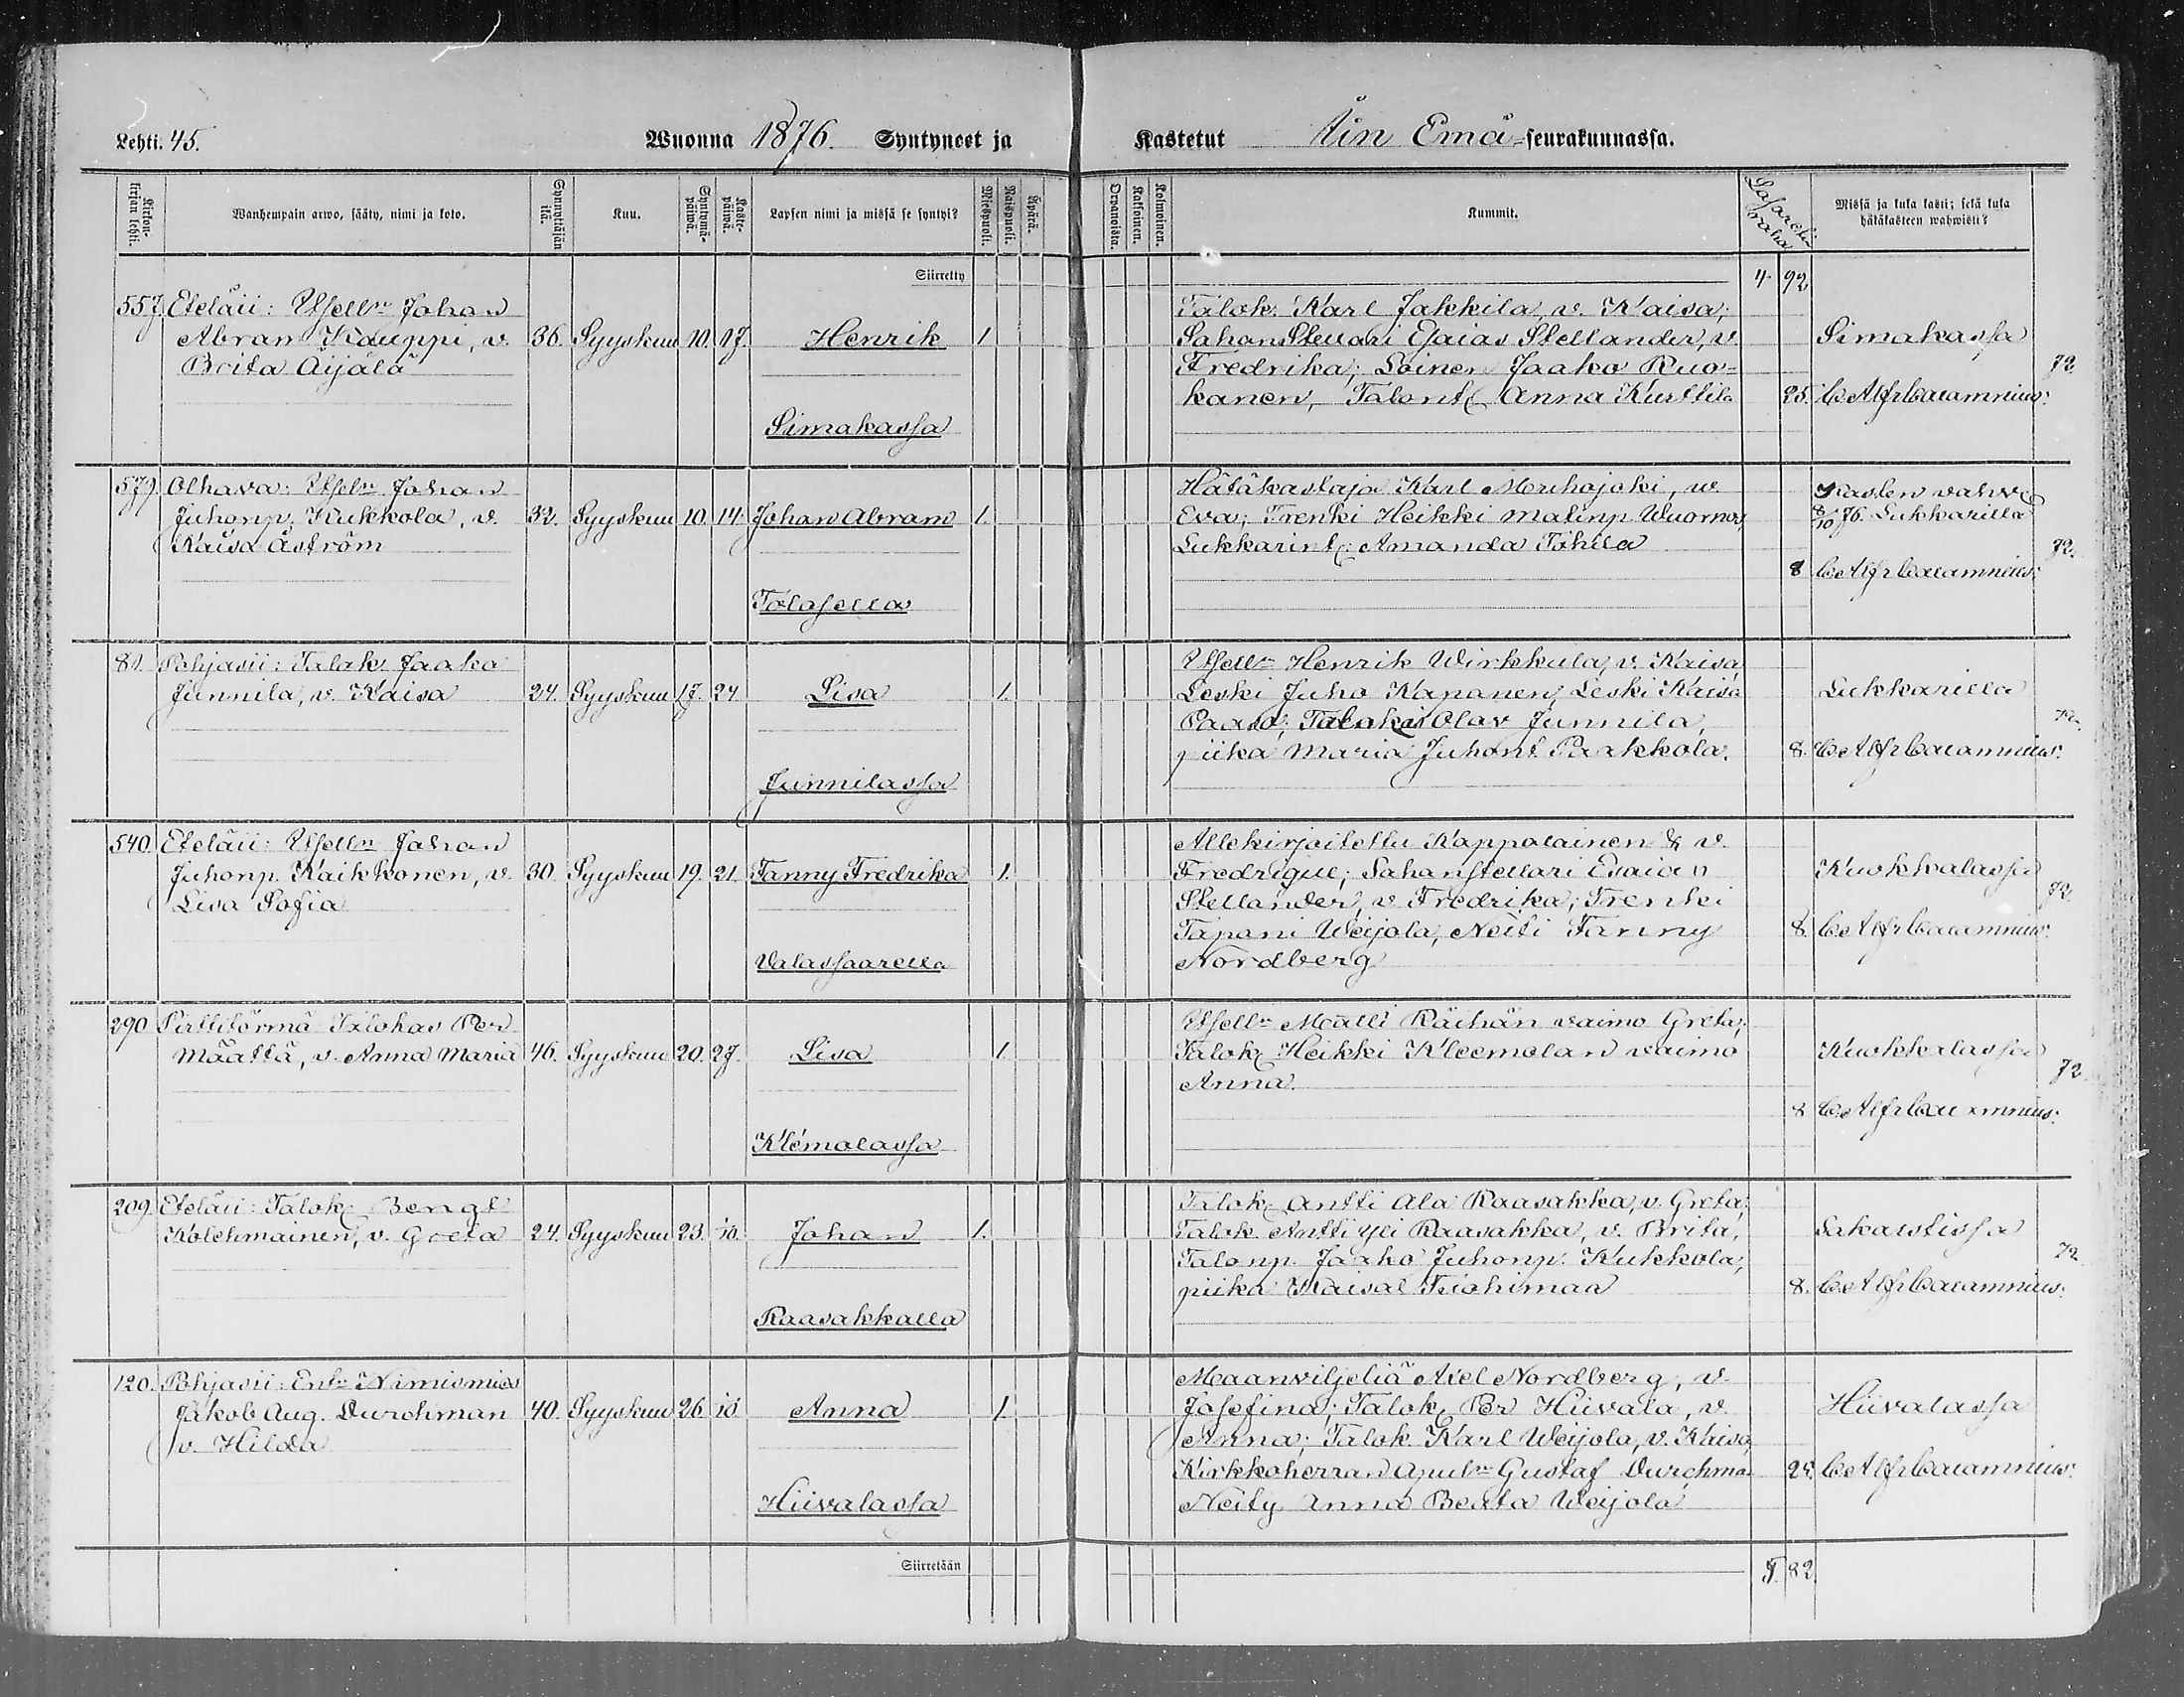 Lehti: 45.
Wuonna 1876. Syntyneet ja
Kastetut Iin Emä-seurakunnassa.
Kirkonkirjan lehti.
Wanhempain arwo, sääty, nimi ja koto.
Synnyttäjän ikä.
Kuu.
Syntymäpäiwä.
Kastepäiwä.
Lapsen nimi ja missä se syntyi?
Miespuoli.
Waispuoli.
Äpärä.
Orpanoista.
Kaksoinen.
Kolmoinen.
Kummit.
Lasaretti
raha
Missä ja kuka kasti; sekä kuka
hätäkasteen wahwisti?
Siirretty
4. 92
557. Eteläii: Itsell:n Johan
Abram Kauppi, v.
Brita Äijälä
36. Syyskuu 10. 17. Henrik 1
Simakassa
Talok. Karl Jakkila, v. Kaisa;
Sahanstellari Esaias Stellander, v.
Fredrika; Loinen Jaako Ruo-
kanen, Talont. Anna Kurttila
25.
Simakassa
C. Alfr Calamnius.
72.
579. Olhava: Itsel:n Johan
Juhonp. Kukkola, v.
Kaisa Åström
32. Syyskuu 10. 14. Johan Abram 1.
Talasella
Hätäkastaja Karl Merihajoki, w.
Eva; Trenki Heikki Matinp. Wuornos,
Lukkarint. Amanda Tähilä
8
Kasten vahv.
8/10 76. Lukkarilla
C Alfr Calamnius.
72.
81. Pohjasii: Talok. Jaako
Junnila, v. Kaisa
24. Syyskuu 17. 24 Lisa 1.
Junnilassa
Itsell:n Henrik Wirkkula, v. Kaisa,
Leski Juho Kapanen, Leski Kaisa
Paaso; Talokas Olav Junnila,
piika Maria Juhont. Paakkola.
8.
Lukkarilla
C Alfr Calamnius.
72.
540. Eteläii: Itsell:n Johan
Juhonp. Kaikkonen, v.
Lisa Sofia
30. Syyskuu 19. 21. Fanny Fredrika 1.
Valassaarella
Allekirjoitettu Kappalainen & v.
Fredrique; Sahanstellari Esaian
Stellander, v. Fredrika; Trenki
Tapani Weijola, Neiti Fanny
Nordberg
8.
Kuokkalassa
C Alfr Calamnius.
72.
290 Pirttitörmä Talokas Per
Määttä, v. Anna Maria
46. Syyskuu 20. 27. Lisa 1.
Klémolassa
Itsell:n Matti Räihän vaimo Greta;
Talok. Heikki Kleemolan vaimo
Anna.
8
Kuokkalassa
C. Alfr Calamnius.
72
209. Eteläii: Talok. Bengt
Kolehmainen, v. Greta
24. Syyskuu 23. Johan 1.
Raasakkalla
Talok. Antti Ala Raasakka, v. Greta;
Talok. Antti Yli Raasakka, v. Brita,
Talonp. Jaako Juhonp. Kukkola;
piika Kaisa
8.
Sakaistissa
C. Alfr Calamnius.
72
120. Pohjasii: Ent:n Nimismies
Jakob Aug. Durchman
v. Hilda
40. Syyskuu 26. Anna 1
Hiivalassa
Maanviljeliä Axel Nordberg, v.
Josefina; Talok. Per Hiivala, v.
Anna; Talok. Karl Weijola, v. Kaisa
Kirkkoherran Apul:n Gustaf Durchman
Neity Anna Beata Weijola
25.
Hiivalassa
C Alfr Calamnius.
Siirretään
5. 82.